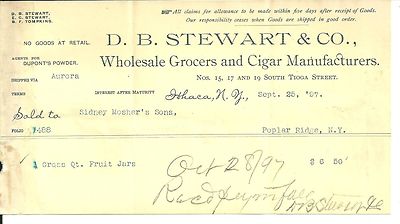 D. B. STEWART,
E. C. STEWART,
B. F. TOMPKINS.
All claims for allowance to be made within five days after receipt of Goods.
Our responsibility ceases when Goods are shipped in good order.
NO GOODS AT RETAIL.
D. B. STEWART & CO.,
AGENTS FOR
DUPONT'S POWDER.
Wholesale Grocers and Cigar Manufacturers.
Nos. 15, 17 AND 19 SOUTH TIOGA STREET.
SHIPPED VIA Aurora
TERMS INTEREST AFTER MATURITY Ithaca, N. Y., Sept. 25, '97.
Sold to Sidney Mosher's Sons,
FOLIO 7488 Poplar Ridge, N.Y.
1 Gross Qt. Fruit Jars $6 50
Oct 28/97
Recd payment
D B Stewart & Co